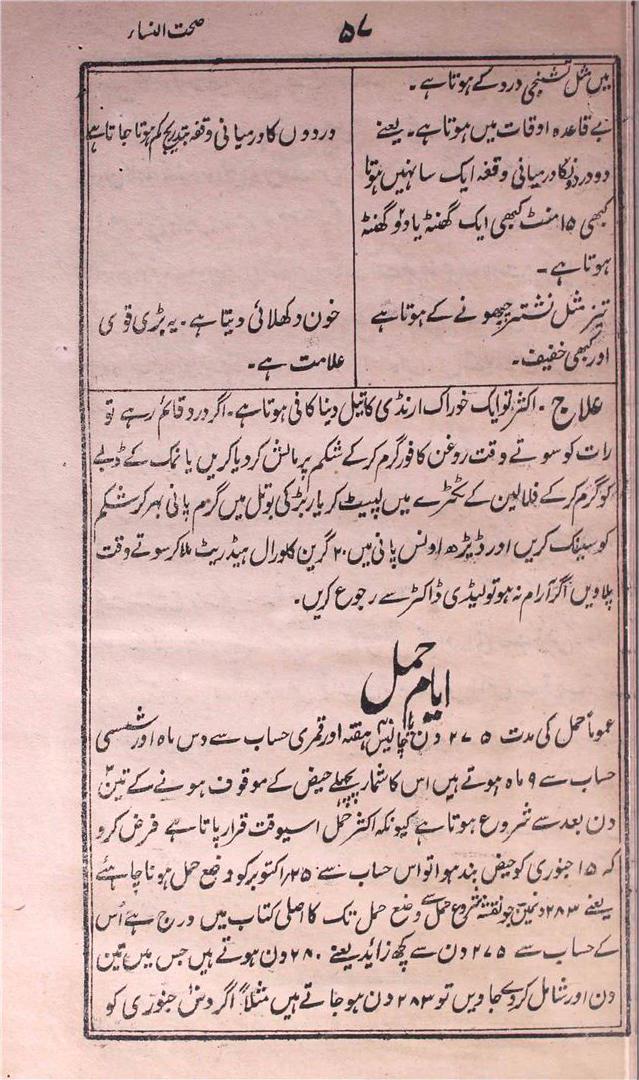 صحت النساء
۵۷
میں مثل تشنجی درد کے ہوتا ہے۔
بے قاعدہ اوقات میں ہوتا ہے۔ یعنے
دو دردونکا درمیانی وقفہ ایک سا نہیں ہوتا
کبھی ۱۵ منٹ کبھی ایک گھنٹہ یا دو گھنٹہ
ہوتا ہے۔
تیز مثل نشتر چبھونے کے ہوتا ہے
اور کبھی خفیف۔
دردوں کا درمیانی وقفہ بتدریج کم ہوتا جاتا ہے
خون دکھلائی دیتا ہے۔ یہ بڑی قوی
علامت ہے۔
علاج۔ اکثر تو ایک خوراک ارنڈی کا تیل دینا کافی ہوتا ہے۔ اگر درد قائم رہے تو
رات کو سوتے وقت روغن کافور گرم کر کے شکم پر مالش کر دیا کریں یا نمک کے ڈلے
کو گرم کر کے فلالین کے ٹکڑے میں لپیٹ کر یا ربڑ کی بوتل میں گرم پانی بھر کر شکم
کو سینک کریں اور ڈیڑھ اونس پانی میں ۲۰ گرین کلورال ہیڈریٹ ملا کر سوتے وقت
پلاویں اگر آرام نہ ہو تو لیڈی ڈاکٹر سے رجوع کریں۔
ایام حمل
عموماً حمل کی مدت ۲۷۵ دن یا چالیس ہفتہ اور قمری حساب سے دس ماہ اور شمسی
حساب سے ۹ ماہ ہوتے ہیں اس کا شمار پچھلے حیض کے موقوف ہونے کے تین
دن بعد سے شروع ہوتا ہے کیونکہ اکثر حمل اسیوقت قرار پاتا ہے فرض کرو
کہ ۱۵ جنوری کو حیض بند ہوا تو اس حساب سے ۲۵ اکتوبر کو وضع حمل ہونا چاہئے
یعنے ۲۸۳ دنمیں جو نقشہ شروع حمل سے وضع حمل تک کا اصلی کتاب میں درج ہے اُس
کے حساب سے ۲۷۵ دن سے کچھ زائد یعنے ۲۸۰ دن ہوتے ہیں جس میں تین
دن اور شامل کر دئے جاویں تو ۲۸۳ دن ہو جاتے ہیں مثلاً اگر دس جنوری کو